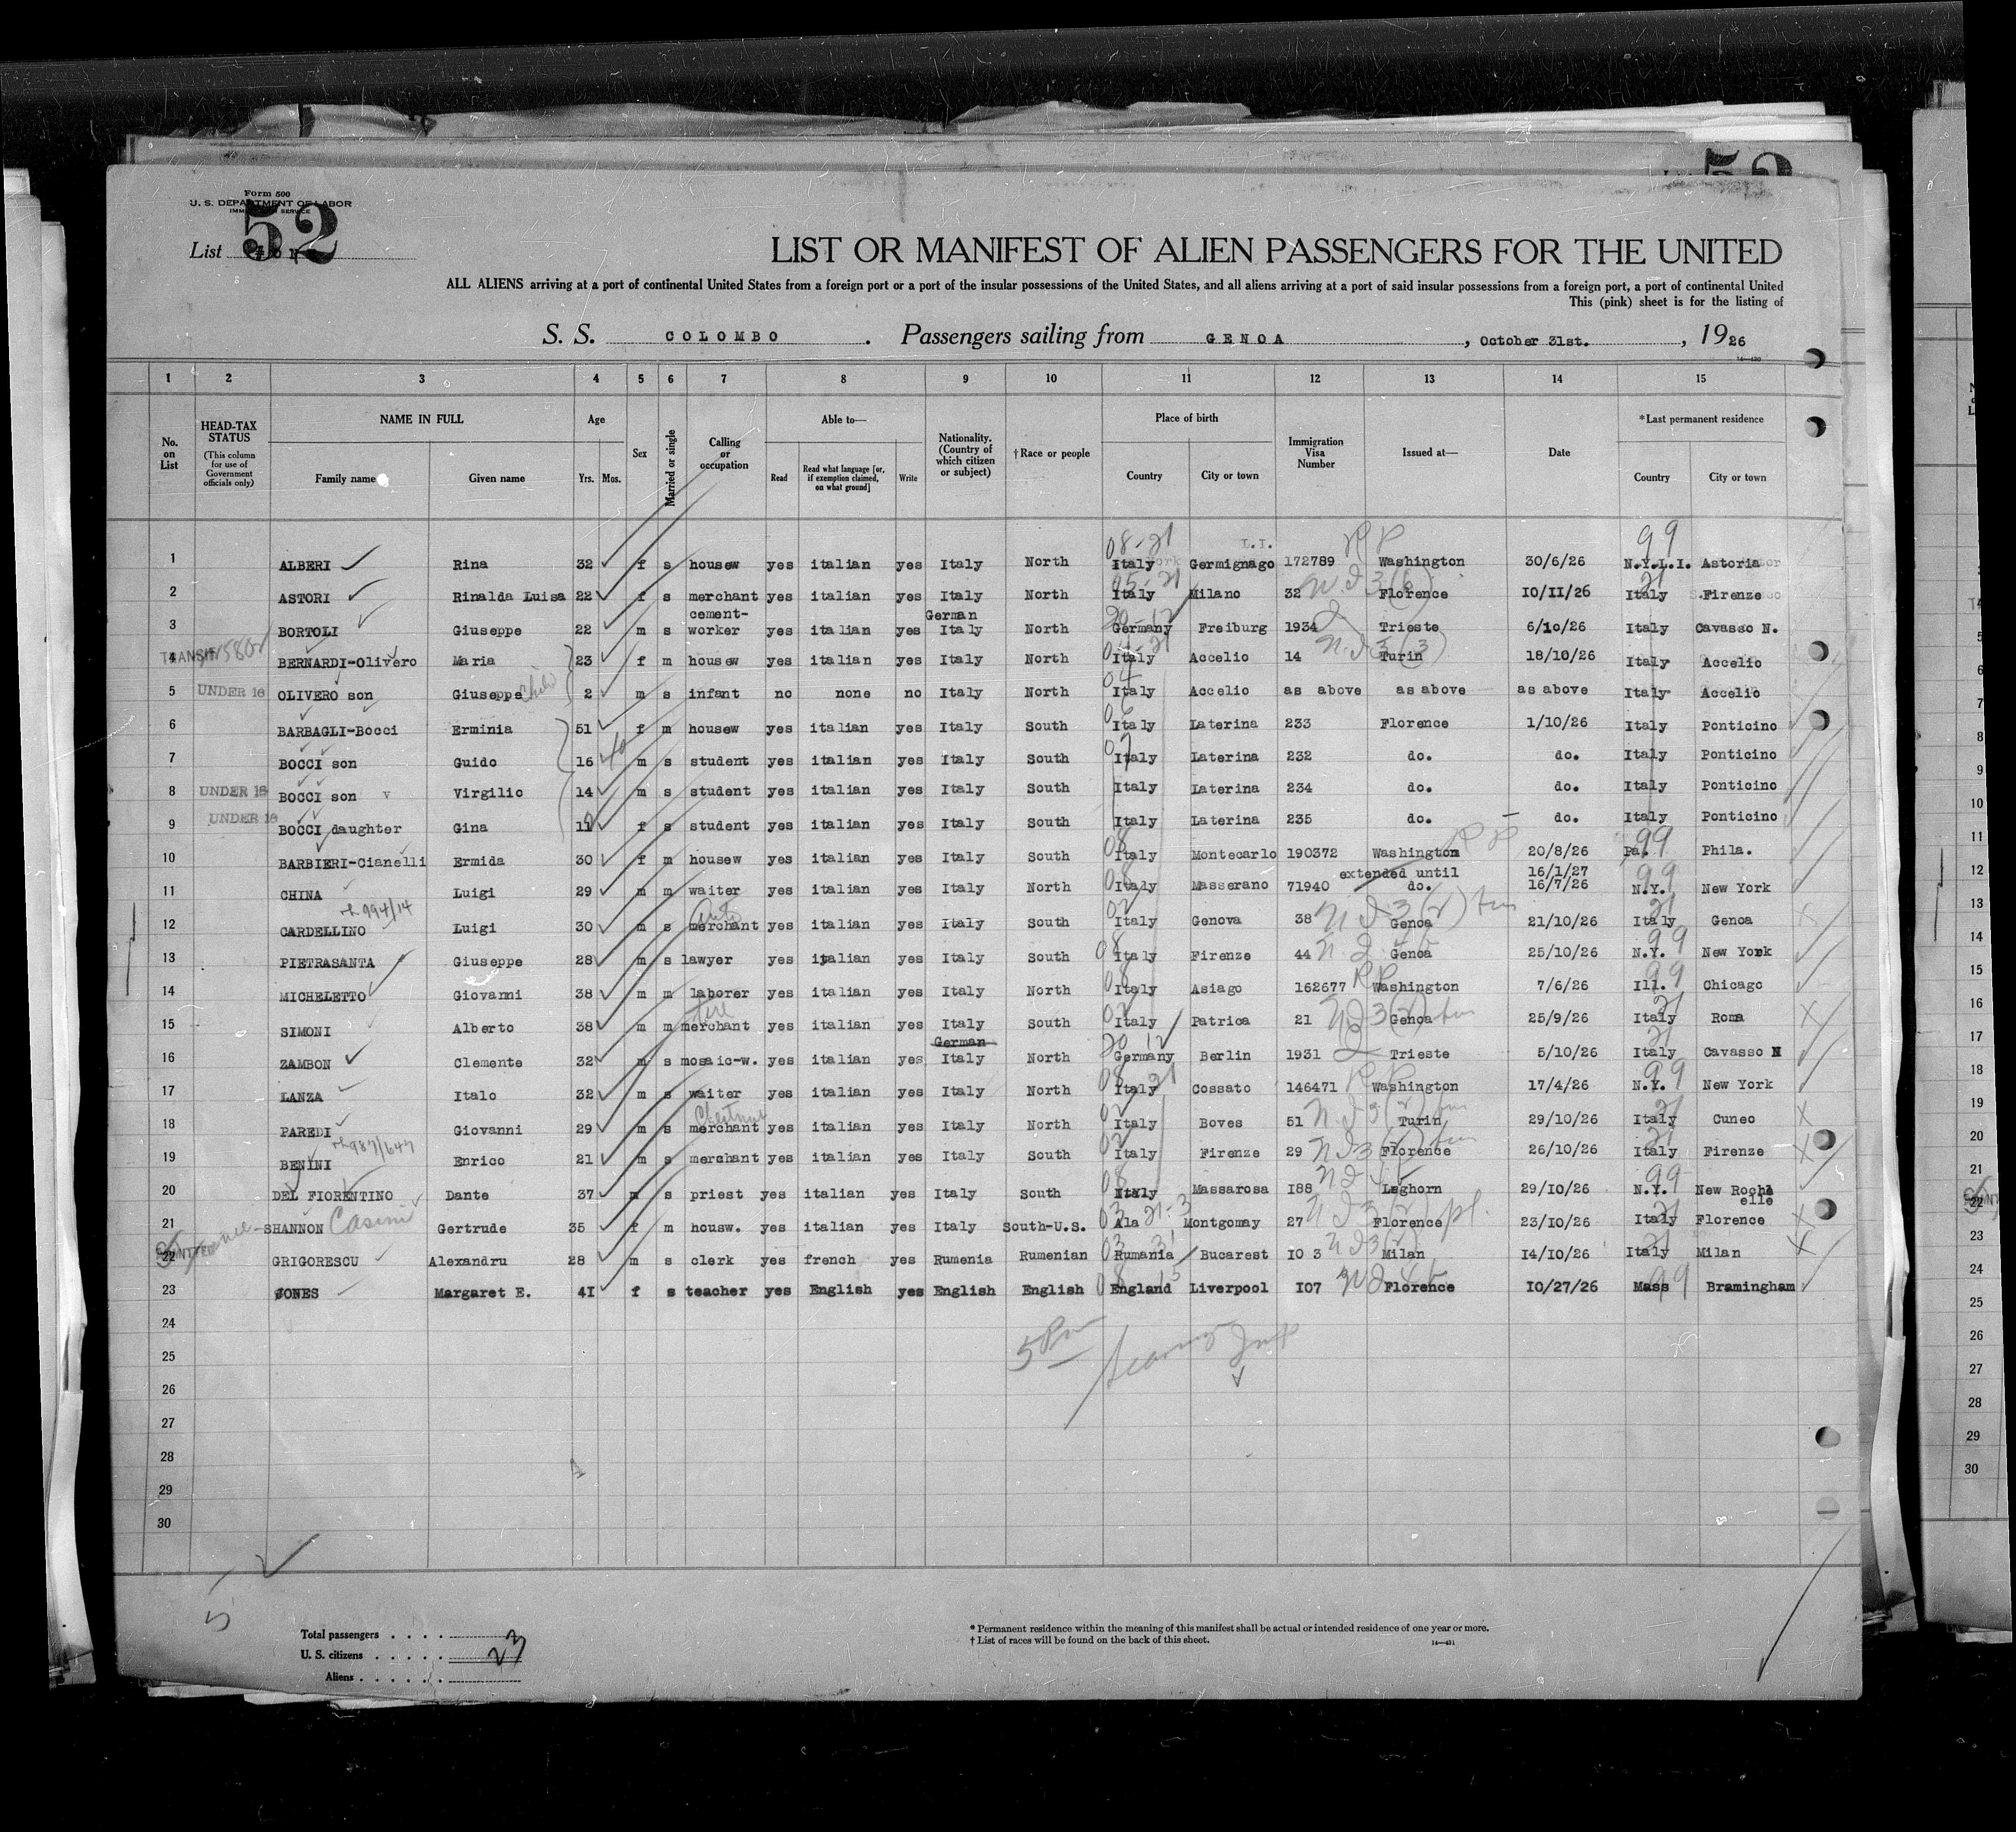 Form 500
U. S. DEPARTMENT OF LABOR
IMMIGRATION SERVICE
52
List
LIST OR MANIFEST OF ALIEN PASSENGERS FOR THE UNITED
ALL ALIENS arriving at a port of continental United States from a foreign port or a port of the insular possessions of the United States, and all aliens arriving at a port of said insular possessions from a foreign port, a port of continental United
This (pink) sheet is for the listing of
S. S. COLOMBO . Passengers sailing from GENOA , October 31st. , 1926
1 2 3 4 5 6 7 8 9 10 11 12 13 14 15
No. on List HEAD-TAX STATUS (This column for use of Government officials only) NAME IN FULL Family name Given name Age Yrs. Mos. Sex Married or single Calling or occupation Able to— Read Read what language [or, if exemption claimed, on what ground] Write Nationality. (Country of which citizen or subject) †Race or people Place of birth Country City or town Immigration Visa Number Issued at— Date *Last permanent residence Country City or town
1 ALBERI Rina 32 f s housew yes italian yes Italy North 08-21 Italy Germignago 172789 RP Washington 30/6/26 99 N.Y.L.I. Astoria
2 ASTORI Rinalda Luisa 22 f s merchant yes italian yes Italy North 05-21 Italy Milano 32 Florence 10/II/26 21 Italy Firenze
3 BORTOLI Giuseppe 22 m s cement-worker yes italian yes German Italy North Germany Freiburg 1934 Trieste 6/10/26 Italy Cavasso N.
4 TRANSIT BERNARDI-Olivero Maria 23 f m housew yes italian yes Italy North Italy Accelio 14 Turin 18/10/26 Italy Accelio
5 UNDER 16 OLIVERO son Giuseppe child 2 m s infant no none no Italy North 04 Italy Accelio as above as above as above Italy Accelio
6 BARBAGLI-Bocci Erminia 51 f m housew yes italian yes Italy South 06 Italy Laterina 233 Florence 1/10/26 Italy Ponticino
7 BOCCI son Guido 16 m s student yes italian yes Italy South 07 Italy Laterina 232 do. do. Italy Ponticino
8 UNDER 18 BOCCI son Virgilio 14 m s student yes italian yes Italy South Italy Laterina 234 do. do. Italy Ponticino
9 UNDER 18 BOCCI daughter Gina 11 f s student yes italian yes Italy South Italy Laterina 235 do. do. Italy Ponticino
10 BARBIERI-Cianelli Ermida 30 f m housew yes italian yes Italy South 08 Italy Montecarlo 190372 Washington RP 20/8/26 99 Pa. Phila.
extended until 16/1/27
11 CHINA Luigi 29 m m waiter yes italian yes Italy North 08 Italy Masserano 71940 do. 16/7/26 99 N.Y. New York
12 CARDELLINO 994/14 Luigi 30 m s Auto merchant yes italian yes Italy South 02 Italy Genova 38 Genoa 21/10/26 21 Italy Genoa
13 PIETRASANTA Giuseppe 28 m s lawyer yes italian yes Italy South 08 Italy Firenze 44 Genoa 25/10/26 99 N.Y. New York
14 MICHELETTO Giovanni 38 m m laborer yes italian yes Italy North 08 Italy Asiago 162677 RP Washington 7/6/26 99 Ill. Chicago
15 SIMONI Alberto 38 m m merchant yes italian yes Italy South 02 Italy Patrica 21 Genoa 25/9/26 21 Italy Roma
16 ZAMBON Clemente 32 m s mosaic-w. yes italian yes German Italy North 20 12 Germany Berlin 1931 Trieste 5/10/26 21 Italy Cavasso N
17 LANZA Italo 32 m s waiter yes italian yes Italy North 08 21 Italy Cossato 146471 RP Washington 17/4/26 99 N.Y. New York
18 PAREDI Giovanni 29 m s Chestnut merchant yes italian yes Italy North 02 Italy Boves 51 Turin 29/10/26 21 Italy Cuneo
19 BENINI 987/647 Enrico 21 m s merchant yes italian yes Italy South 02 Italy Firenze 29 Florence 26/10/26 21 Italy Firenze
20 DEL FIORENTINO Dante 37 m s priest yes italian yes Italy South 08 Italy Massarosa I88 Leghorn 29/10/26 99 N.Y. New Rochelle
21 SHANNON Casini Gertrude 35 f m housw. yes italian yes Italy South-U.S. 03 21-3 Ala Montgomay 27 Florence 23/10/26 21 Italy Florence
22 GRIGORESCU Alexandru 28 m s clerk yes french yes Rumenia Rumenian 03 31 Rumania Bucarest IO 3 Milan 14/10/26 21 Italy Milan
23 JONES Margaret E. 4I f s teacher yes English yes English English 08 15 England Liverpool I07 Florence 10/27/26 99 Mass Bramingham
24
25
26
27
28
29
30
5
Total passengers
U. S. citizens 23
Aliens
* Permanent residence within the meaning of this manifest shall be actual or intended residence of one year or more.
† List of races will be found on the back of this sheet.
14—431